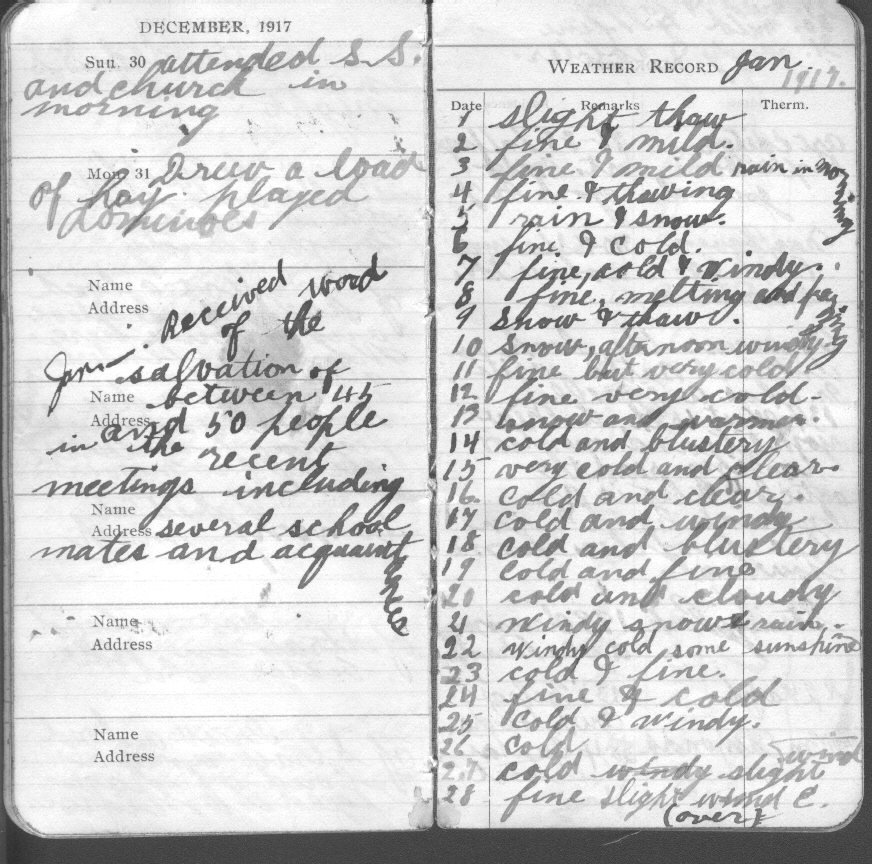 DECEMBER, 1917
Sun. 30 attended S. S.
and church in
morning
Mon. 31 Drew a load
of hay played
dominoes
Name
Address
Received word
of the
Jan—. salvation of
Name between 45
Address and 50 people
in the recent
meetings including
Name
Address several school
mates and acquaint
ances
Name
Address
Name
Address
WEATHER RECORD Jan.
1917.
Date Remarks Therm.
1 slight thaw
2 fine & mild.
3 fine & mild rain in morning
4 fine & thawing
5 rain & snow.
6 fine & cold.
7 fine, cold & windy.
8 fine, melting and freezing
9 snow & thaw.
10 snow, afternoon windy
11 fine but very cold
12 fine very cold-
13 snow and warmer.
14 cold and blustery
15 very cold and clear.
16. cold and clear.
17 cold and windy
18 cold and blustery
19 cold and fine
20 cold and cloudy
21 windy snow & rain.
22 windy cold some sunshine
23 cold & fine.
24 fine & cold
25 cold & windy.
26 cold
27 cold windy slight wind
28 fine slight wind E.
(over)